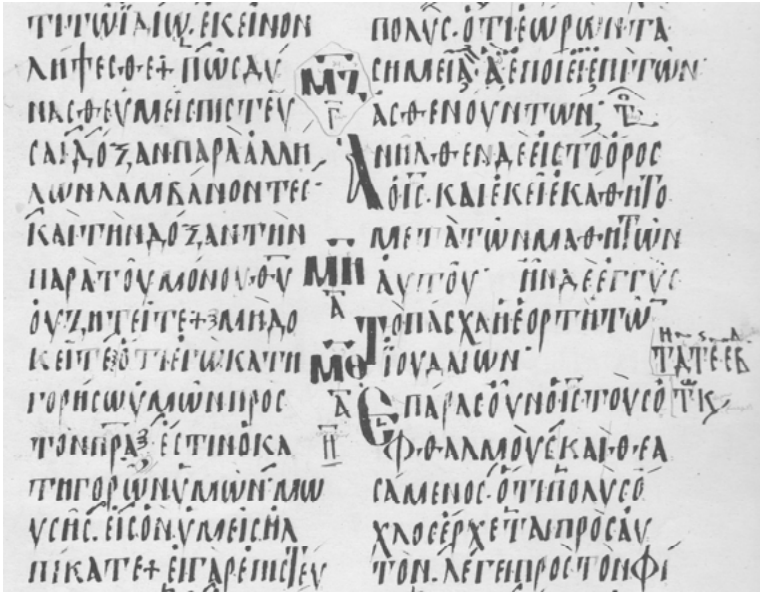 ΤΙΤΩΪΔΙΩ. ΕΚΕΙΝΟΝ
ΛΗΨΕϹΘΕ+ ΠΩϹΔΥ
ΝΑϹΘΕΥΜΕΙϹΠΙϹΤΕΥ
ϹΑΙΔΟΞΑΝΠΑΡΑΑΛΛΗ
ΛΩΝΛΑΜΒΑΝΟΝΤΕϹ
ΚΑΙΤΗΝΔΟΞΑΝΤΗΝ
ΠΑΡΑΤΟΥΜΟΝΟΥΘΥ
ΟΥΖΗΤΕΙΤΕ+ΜΗΔΟ
ΚΕΙΤΕΟΤΙΕΓΩΚΑΤΗ
ΓΟΡΗϹΩΥΜΩΝΠΡΟϹ
ΤΟΝΠΡΑ. ΕϹΤΙΝΟΚΑ
ΤΗΓΟΡΩΝΥΜΩΝ·ΜΩ
ΥϹΗϹ. ΕΙϹΟΝΥΜΕΙϹΗΛ
ΠΙΚΑΤΕ+ ΕΙΓΑΡΕΠΙϹΤΕΥ
ΜΖ
Γ
ΜΗ
Α
ΜΘ
Α
Η
ΠΟΛΥϹ. ΟΤΙΕΩΡΩΝΤΑ
ϹΗΜΕΙΑ Α ΕΠΟΙΕΙΕΠΙΤΩΝ
ΑϹΘΕΝΟΥΝΤΩΝ
ΑΝΗΛΘΕΝΔΕΕΙϹΤΟΟΡΟϹ
ΟΙϹ. ΚΑΙΕΚΕΙΕΚΑΘΗΤΟ
ΜΕΤΑΤΩΝΜΑΘΗΤΩΝ
ΑΥΤΟΥ· ΗΝΔΕΕΓΓΥϹ
ΤΟΠΑϹΧΑΗΕΟΡΤΗΤΩ
ΪΟΥΔΑΙΩΝ·
ΕΠΑΡΑϹΟΥΝΟΙϹΤΟΥϹΟ
ΦΘΑΛΜΟΥϹΚΑΙΘΕΑ
ϹΑΜΕΝΟϹ. ΟΤΙΠΟΛΥϹΟ
ΧΛΟϹΕΡΧΕΤΑΙΠΡΟϹΑΥ
ΤΟΝ. ΛΕΓΕΙΠΡΟϹΤΟΝΦΙ